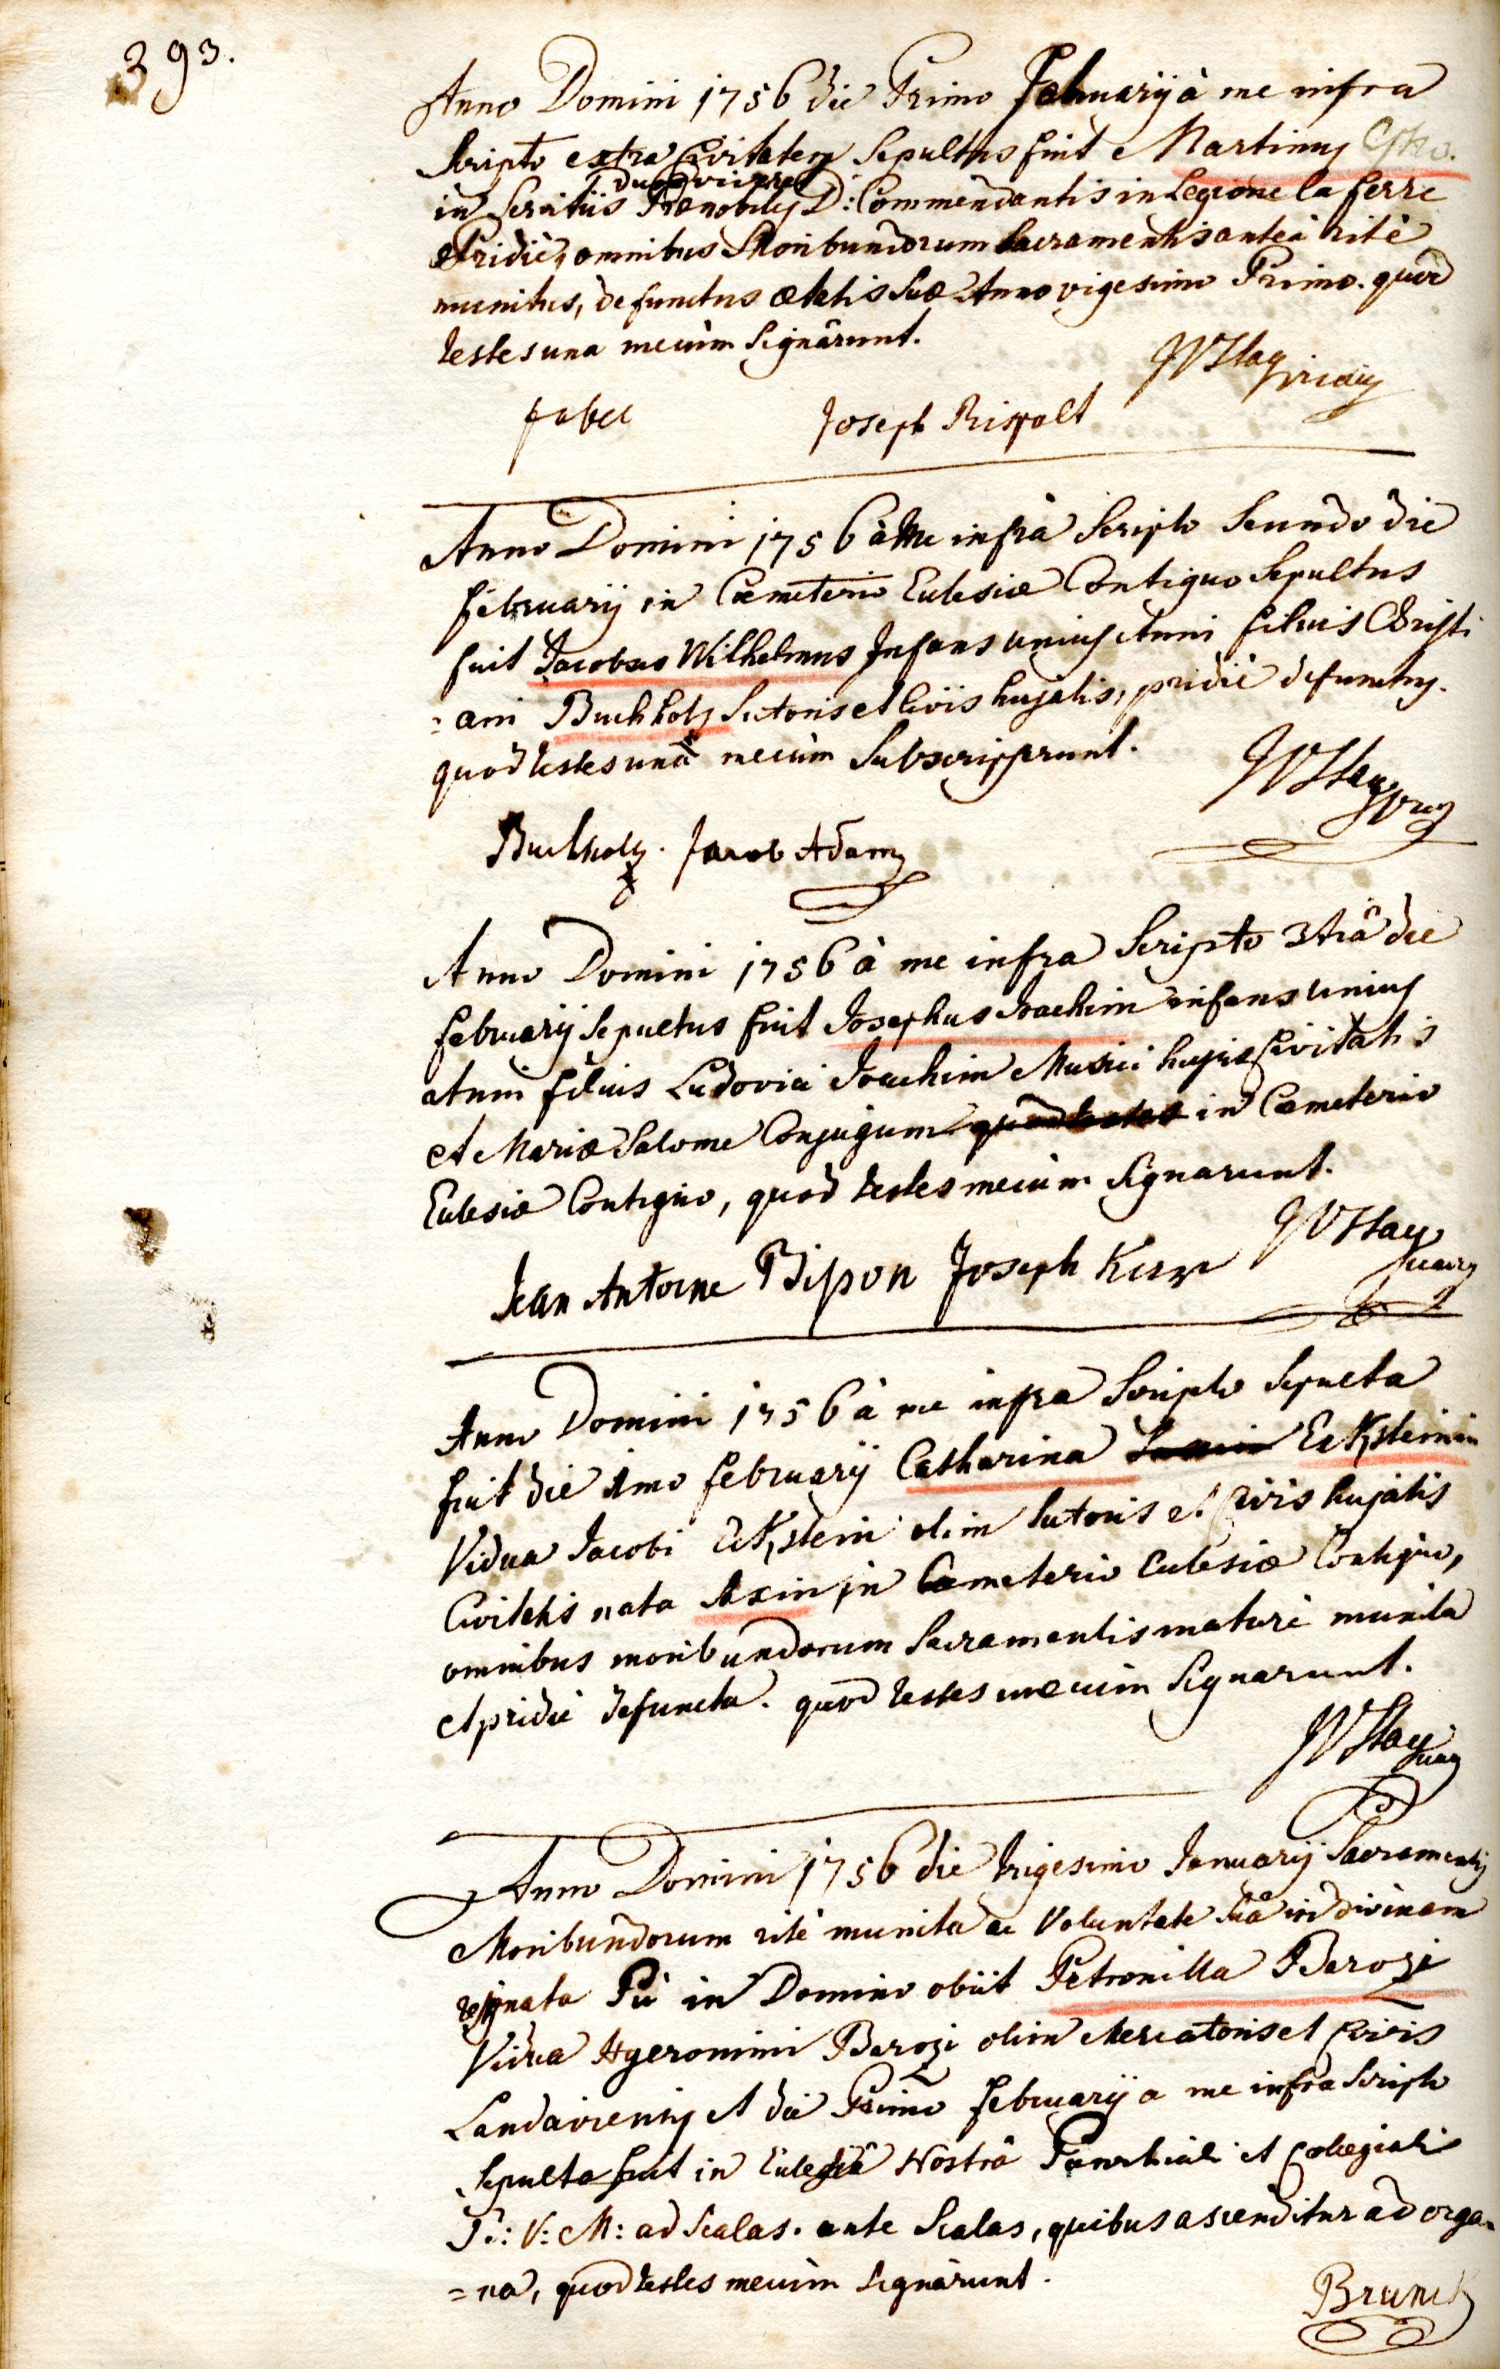 393.
Anno Domini 1756 die Primo Februarij à me infra
scripto extra Civitatem sepultus fuit Martinus
in servitiis Prænobilis D: Commendantis in Legione la ferre
et Pridiè, omnibus Moribundorum Sacramentis anteà ritè
munitus, defunctus ætatis suæ Anno vigesimo Primo. quod
testes una mecùm signârunt.
Joseph Rispalt
Anno Domini 1756 à Me infrà scripto secundo die
februarij in Cœmeterio Eclesiæ Contiguo sepultus
fuit Jacobus Wilhelmus Infans unius Anni filius Christi
=ani Buchholz sutoris et Civis hujatis, pridiè defunctus.
quod testes unà mecùm subscripserunt.
Buchholz. Jacob Adam
Anno Domini 1756 à me infra scripto 3tiâ die
februarij sepultus fuit Josephus Joachim infans unius
Anni filius Ludovici Joachim Musici hujus Civitatis
et Mariæ Salome Conjugum in Cœmeterio
Eclesiæ Contiguo, quod testes mecùm signarunt.
Jean Antoine Bipon Joseph
Anno Domini 1756 à me infra scripto sepulta
fuit die 1mo februarij Catharina Eckstein
Vidua Jacobi Eckstein olim sutoris et Civis hujatis
Civitatis nata Axin in Cœmeterio Eclesiæ Contiguo,
omnibus moribundorum Sacramentis maturè munita
et pridiè defuncta. quod testes mecum signarunt.
Anno Domini 1756 die trigesimo Januarij Sacramentis
Moribundorum ritè munita ac Voluntate suâ in divinam
resignata Piè in Domino obiit Petronilla Barozi
Vidua Hyeronimi Barozi olim Mercatoris et Civis
Landaviensis et die Primo februarij a me infra scripto
sepulta fuit in Eclesiâ Nostrâ Parochiali et Collegiali
B: V: M: ad scalas. ante scalas, quibus ascenditur ad orga=
=na, quod testes mecùm signàrunt.
Brunck